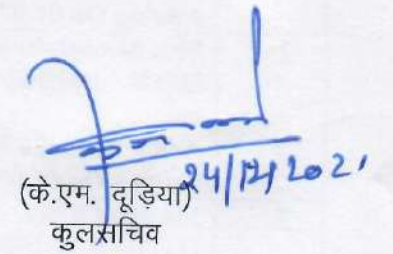 24/12/2021
(के.एम. दूड़िया)
कुलसचिव